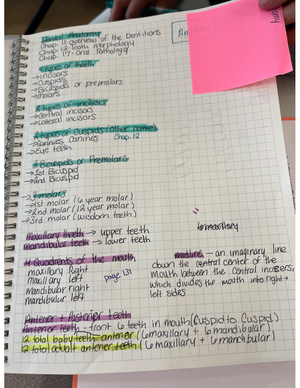 Dental Anatomy
Chap. 11-overview of the Dentitions
Chap. 12-Tooth morphology
Chap. 17-Oral Pathology
4 types of teeth
→incisors
→Cuspids
→Bicuspids or premolars
→molars
2 types of incisors
→central incisors
→Lateral incisors
2 types of Cuspids (other names)
→Canines Chap. 12
→Eye teeth
2 Bicuspids or Premolars
→1st Bicuspid
→2nd Bicuspid
→3 molars
→1st molar (6 year molar)
→2nd molar (12 year molar)
→3rd molar (wisdom teeth)
Maxillary teeth → upper teeth
mandibular teeth → lower teeth
4 Quadrants of the mouth
maxillary Right
maxillary left
mandibular right
mandibular left
page 131
midline - an imaginary line
down the central center of the
Mouth between the Central incisors,
which divides the mouth into right +
left sides
Anterior + Posterior teeth
Anterior teeth - front 6 teeth in mouth (Cuspid to Cuspid)
12 total baby teeth anterior (6 maxillary + 6 mandibular)
12 total adult anterior teeth (6 maxillary + 6 mandibular)